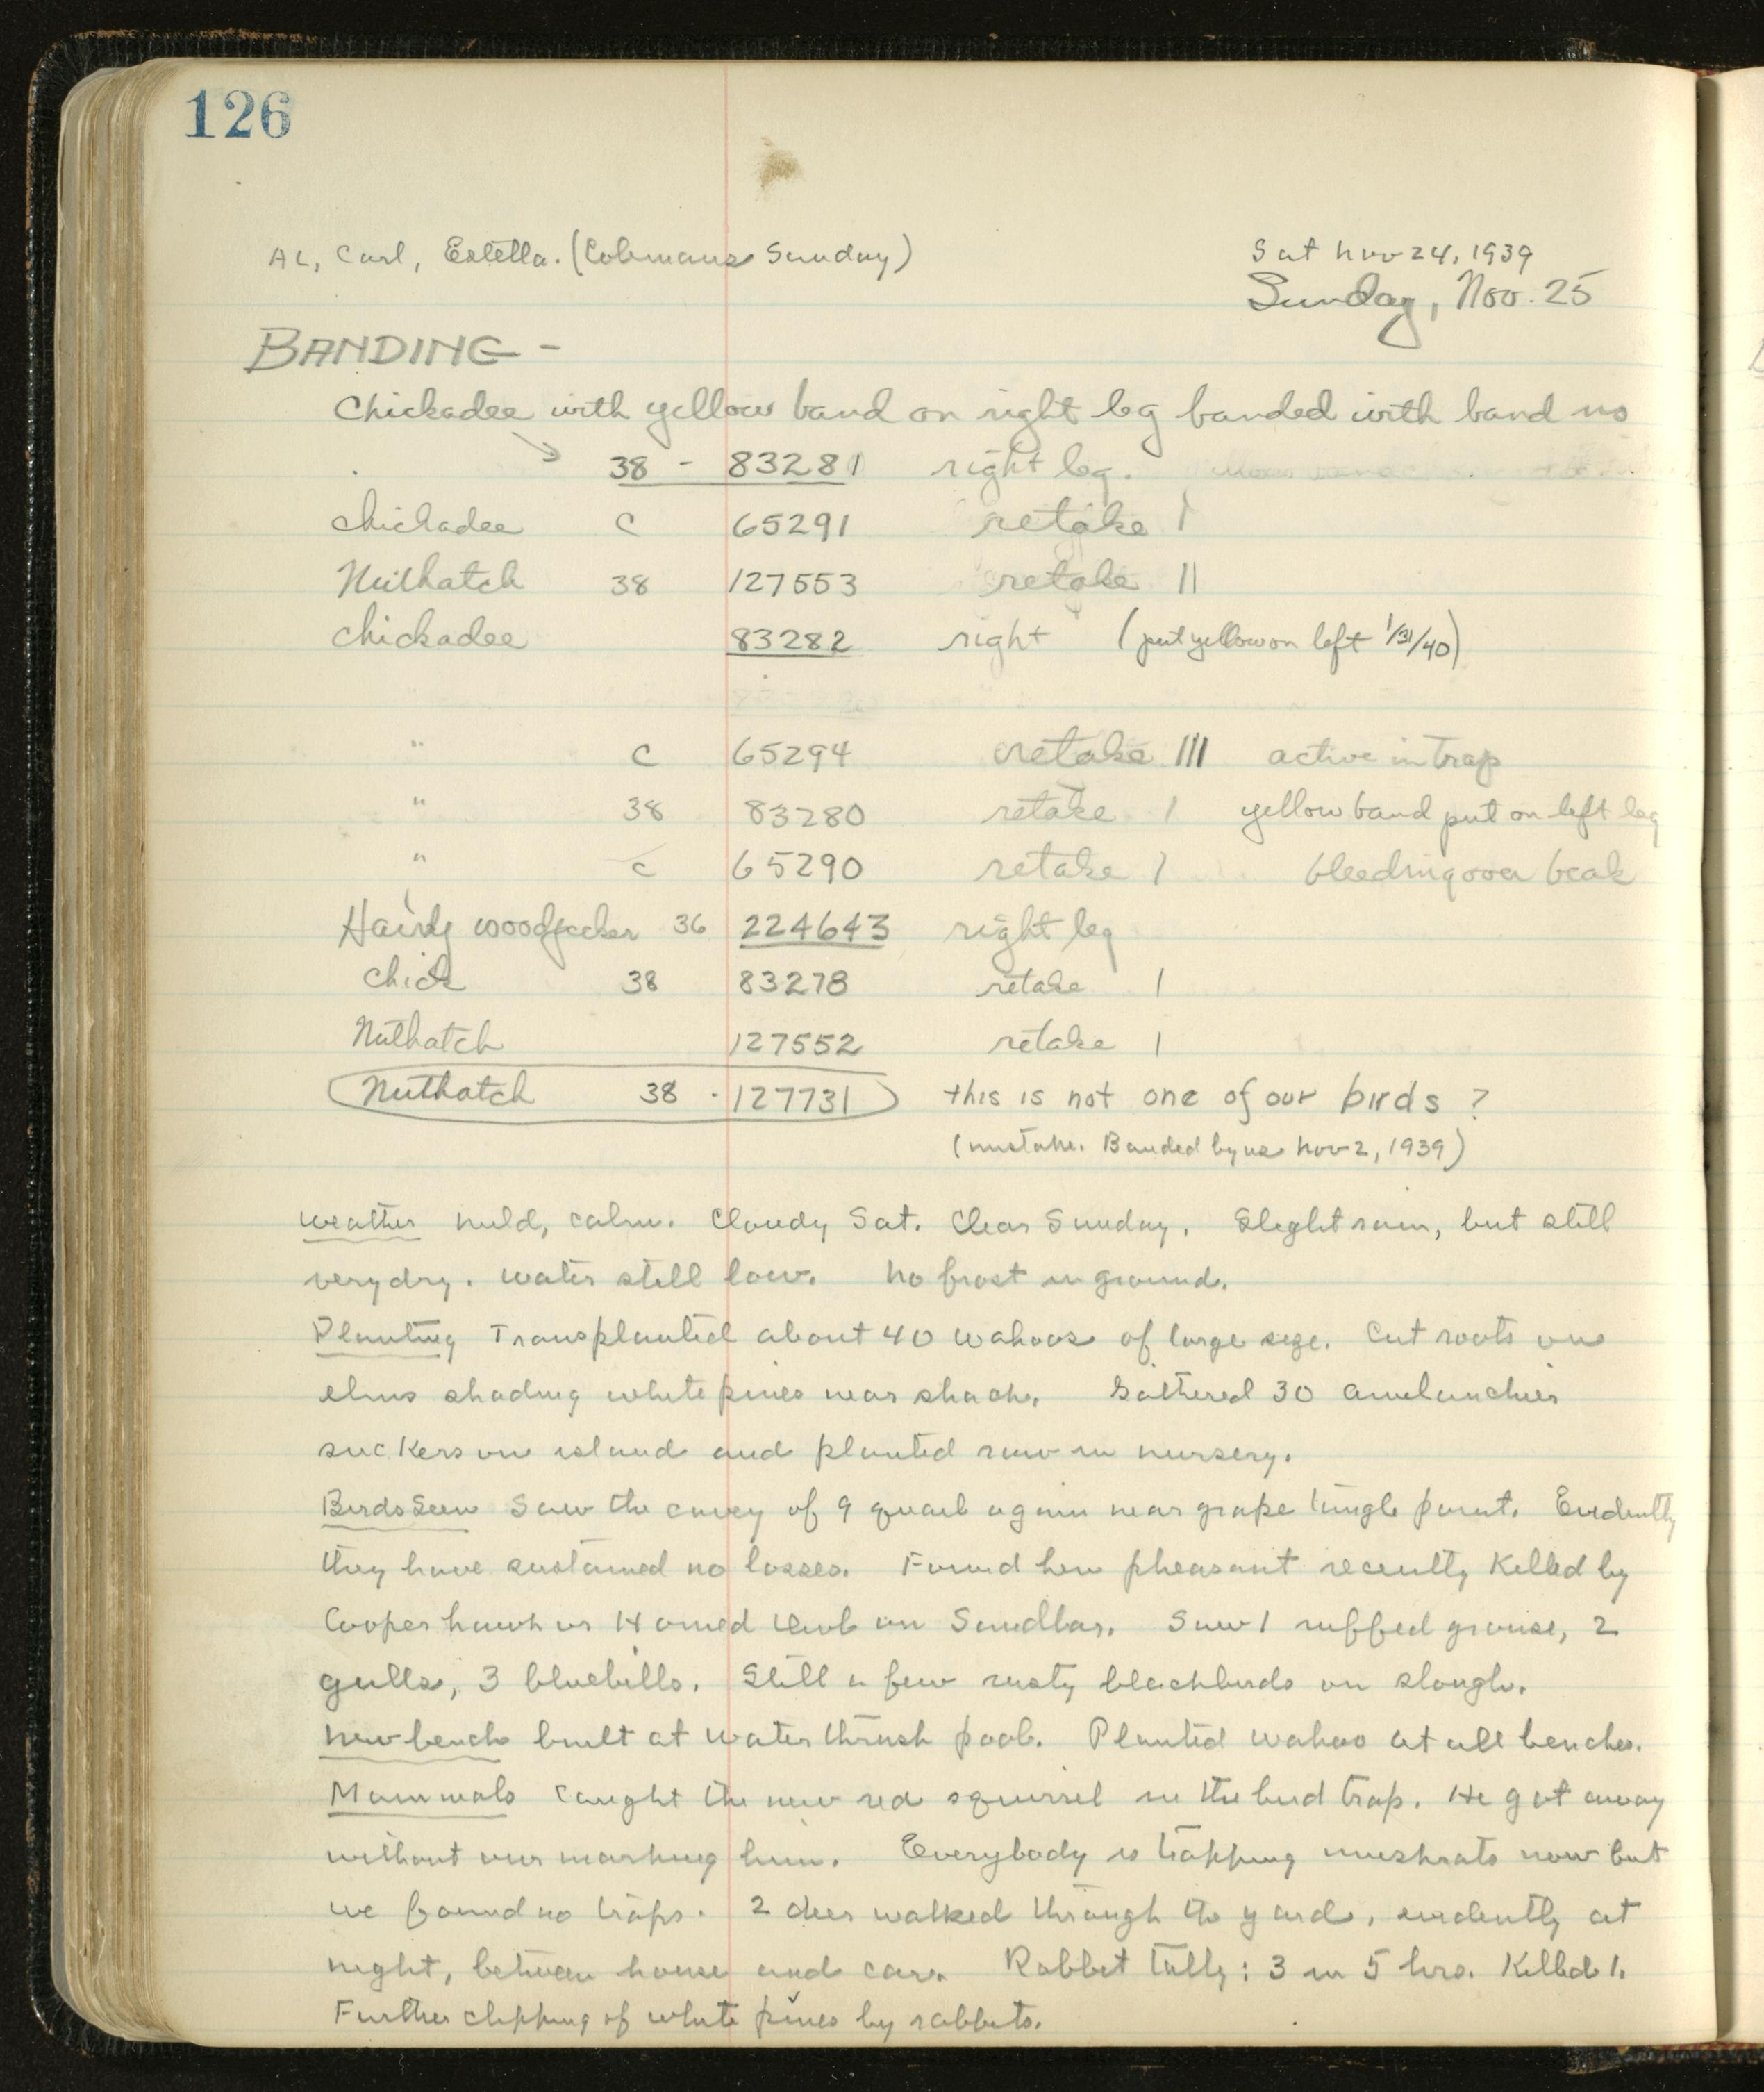 126
AL, Carl, Estella. (Colemans Sunday)
Sat Nov 24, 1939
Sunday, Nov. 25
BANDING -
Chickadee with yellow band on right leg banded with band no
38 - 83281 right leg.
Chickadee C 65291 retake I
Nuthatch 38 127553 retake II
Chickadee 83282 right (put yellow on left 1/31/40)
" C 65294 retake III active in trap
" 38 83280 retake I yellow band put on left leg
" C 65290 retake I bleeding over beak
Hairy woodpecker 36 224643 right leg
Chick 38 83278 retake I
Nuthatch 127552 retake I
Nuthatch 38 - 127731 this is not one of our birds ?
(mistake. Banded by us Nov 2, 1939)
Weather mild, calm. Cloudy Sat. Clear Sunday. Slight rain, but still
very dry. Water still low. No frost in ground.
Planting Transplanted about 40 wahoos of large size. Cut roots on
elms shading white pines near shack. Gathered 30 amelanchier
suckers on island and planted row in nursery.
Birds Seen Saw the covey of 9 quail again near grape tangle point. Evidently
they have sustained no losses. Found hen pheasant recently killed by
Cooper hawk or Horned Owl on Sandbar. Saw 1 ruffed grouse, 2
gulls, 3 bluebills. Still a few rusty blackbirds on slough.
New bench built at water thrush pool. Planted wahoo at all benches.
Mammals Caught the new red squirrel in the bird trap. He got away
without our marking him. Everybody is trapping muskrats now but
we found no traps. 2 deer walked through the yard, evidently at
night, between house and car. Rabbit tally: 3 in 5 hrs. Killed 1.
Further clipping of white pines by rabbits.